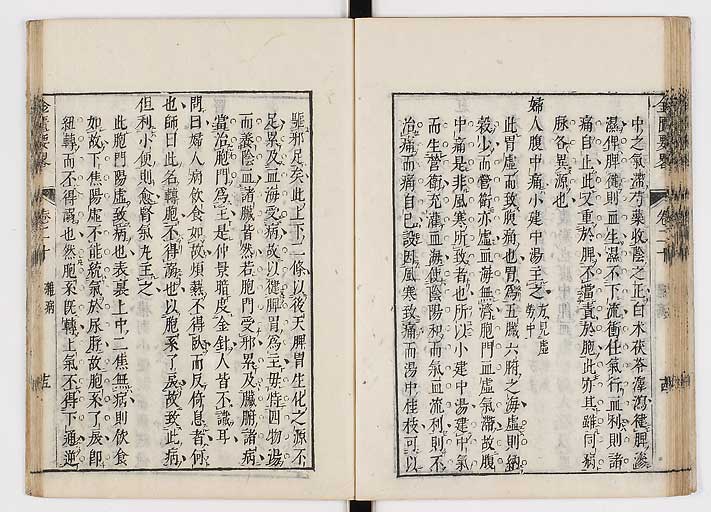 中之氣滯芍藥收陰之正白术茯苓澤瀉健脾滲
濕俾脾健則血生濕不下流衝任氣行血利則諸
痛自止此又重於脾不當責於胞此亦其雖同病
脉各異源也
婦人腹中痛小建中湯主之 方見虛勞中
此胃虛而致腹痛也胃爲五臟六腑之海虛則納
穀少而營衛亦虛血海無濟胞門血虛氣滯故腹
中痛是非風寒所致者也所以小建中湯建中氣
而生營衛充灌血海使陰陽和而氣血流利則不
治痛而痛自已設因風寒致痛而湯中桂枝可以
驅邪足矣此上下二條以後天脾胃生化之源不
足累及血海受病故以健脾胃爲主毋恃四物湯
而養陰血諸臟皆然若胞門受邪累及臟腑諸病
當治胞門爲主是仲景暗度金針人皆不識耳
問曰婦人病飲食如故煩熱不得臥而反倚息者何
也師曰此名轉胞不得溺也以胞系了戾故致此病
但利小便則愈腎氣丸主之
此胞門陽虛致病也表裏上中二焦無病則飲食
如故下焦陽虛不能統氣於尿脬故胞系了戾即
紐轉而不得溺也然胞系既轉上氣不得下通逆
金匱要畧
卷二十
雜病